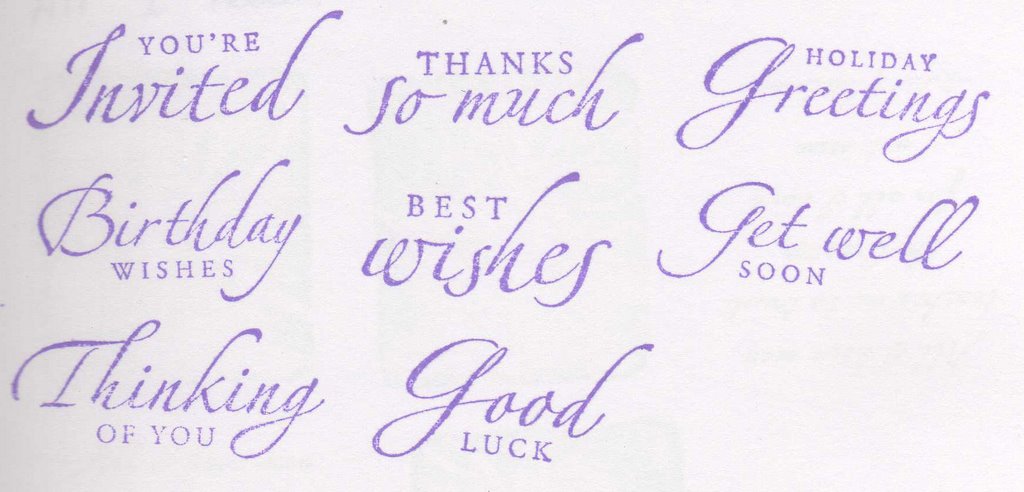 YOU'RE
Invited
THANKS
so much
HOLIDAY
Greetings
Birthday
WISHES
BEST
wishes
Get well
SOON
Thinking
OF YOU
Good
LUCK